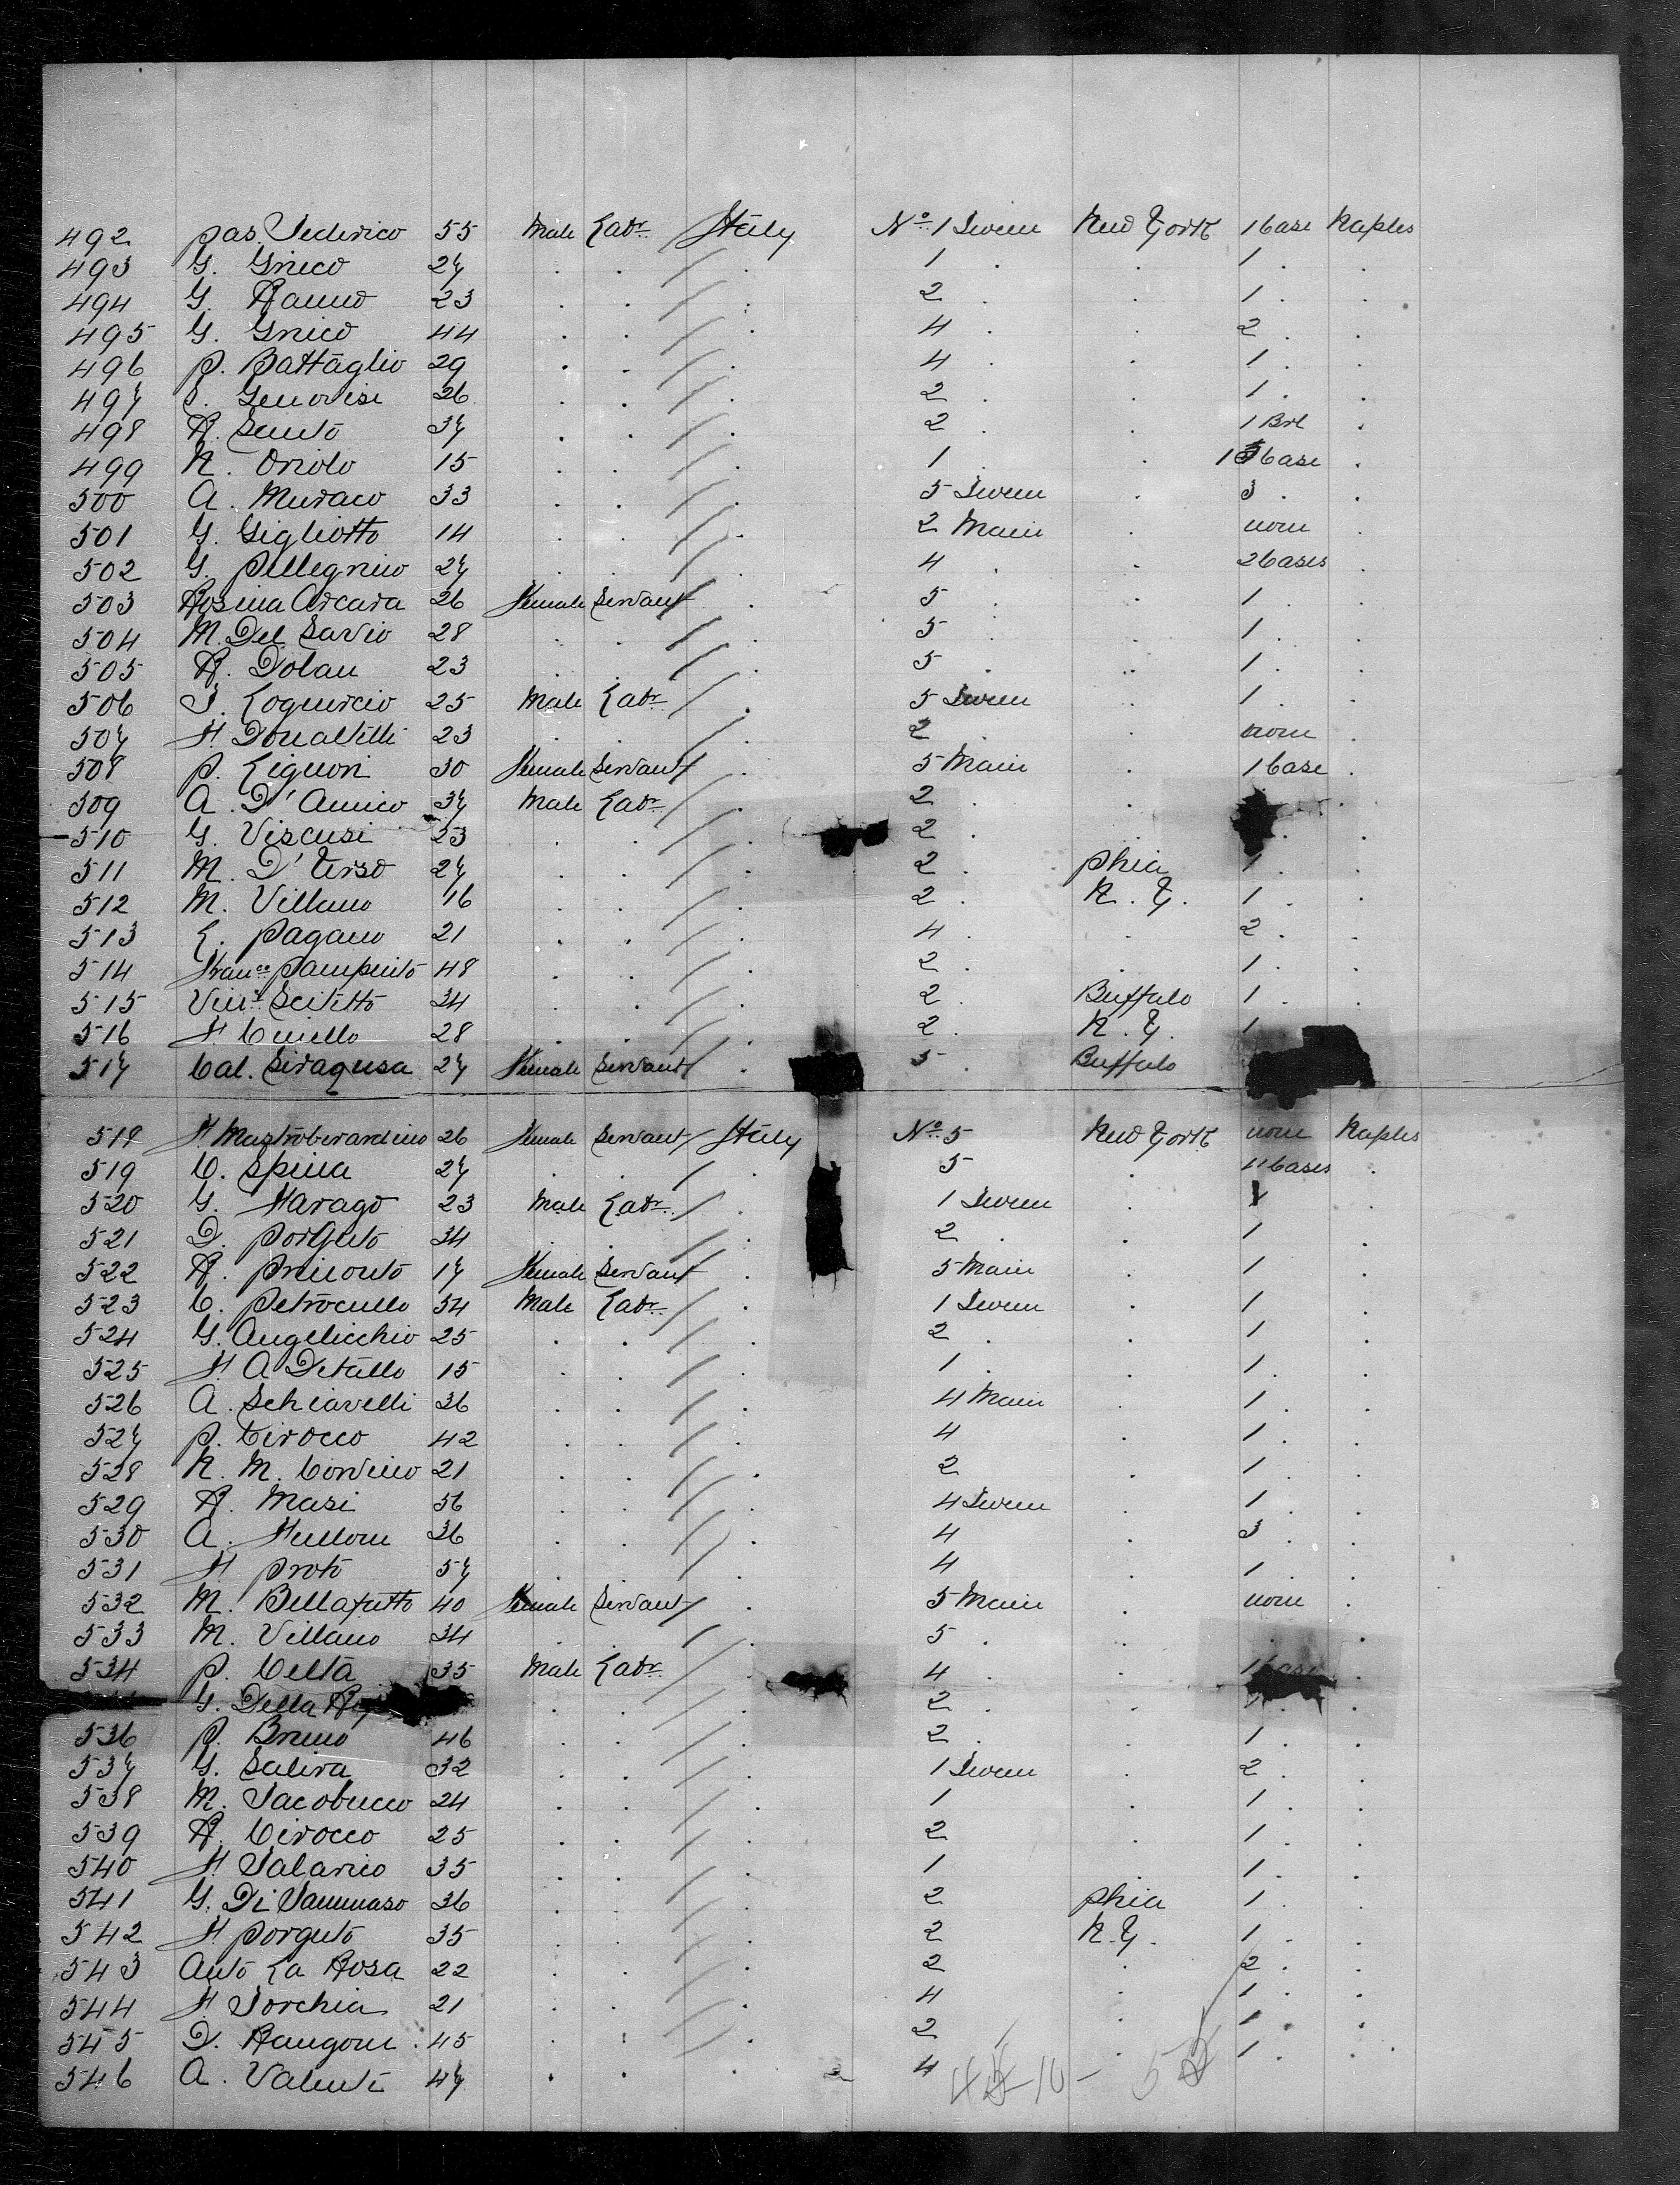 492 pas. Federico 55 Male Labr. Italy No. 1 Tween New York 1 Case Naples
493 G. Grieco 27 . . / . 1 . . 1 . .
494 G. Ranno 23 . . / . 2 . . 1 . .
495 G. Grieco 44 . . / . 4 . . 2 . .
496 P. Battaglio 29 . . / . 4 . . 1 . .
497 S. Genovisi 26 . . / . 2 . . 1 . .
498 R. Sento 37 . . / . 2 . . 1 Brl .
499 N. Oriolo 15 . . / . 1 . . 1 Case .
500 A. Muraco 33 . . / . 5 Tween . 3 . .
501 G. Gigliotto 14 . . / . 2 Main . none .
502 G. Pellegrino 27 . . / . 4 . . 2 Cases .
503 Rosina Arcara 26 Female Servant / . 5 . . 1 . .
504 M. Del Savio 28 . . / . 5 . . 1 . .
505 R. Dolan 23 . . / . 5 . . 1 . .
506 Loguercio 25 Male Labr. / . 5 Tween . 1 . .
507 F. Donatelli 23 . . / . 2 . . none .
508 P. Liguori 30 Female Servant / . 5 Main . 1 Case .
509 A. D'Amico 37 Male Labr. / . 2 . .
510 G. Viscusi 23 . . / . 2 . . .
511 M. D'Urso 27 . . / . 2 . Phia 1 . .
512 M. Villano 16 . . / . 2 . N. Y. 1 . .
513 L. Pagano 21 . . / . 4 . . 2 . .
514 Franco. Sampinto 48 . . / . 2 . . 1 . .
515 Scitetto 34 . . / . 2 . Buffalo 1 . .
516 F. Ciniello 28 . . / . 2 . N. Y. 1
517 Cal. Siragusa 27 Female Servant / . 5 . Buffalo
518 F. Mastroberardino 26 Female Servant / Italy No. 5 New York none Naples
519 C. Spina 27 . . / . 5 . 11 Cases .
520 G. Farago 23 Male Labr. / . 1 Tween . 1 .
521 D. Porguto 34 . . / . 2 . . 1 .
522 R. Primonto 17 Female Servant . 5 Main . 1 .
523 C. Petrocello 34 Male Labr. / . 1 Tween . 1 .
524 G. Angelicchio 25 . . / . 2 . . 1 .
525 F. A Detullo 15 . . / . 1 . . 1 . .
526 A. Schiavelli 36 . . / . 4 Main . 1 . .
527 P. Cirocco 42 . . / . 4 . 1 . .
528 N. M. Corvino 21 . . / . 2 . 1 . .
529 R. Masi 56 . . / . 4 Tween . 1 . .
530 A. Fullone 36 . . / . 4 . 3 . .
531 F. Proto 57 . . / . 4 . 1 . .
532 M. Bellafatto 40 Female Servant / . 5 Main . none .
533 M. Villano 34 . . / . 5 . . . .
534 P. Celta 35 Male Labr. / . 4 . . 1 Case .
G. Della . . / . 2 . . .
536 P. Bruno 46 . . / . 2 . . 1 . .
537 G. Saliva 32 . . / . 1 Tween . 2 . .
538 M. Jacobucco 24 . . / . 1 . 1 . .
539 R. Cirocco 25 . . / . 2 . 1 . .
540 F. Talarico 35 . . / . 1 . 1 . .
541 G. Di Tammaso 36 . . / . 2 Phia 1 . .
542 F. Porguto 35 . . / . 2 N. Y. 1 . .
543 Anto La Rosa 22 . . / . 2 . 2 . .
544 F. Torchia 21 . . / . 4 . 1 . .
545 D. Rangone 45 . . / . 2 . 1 . .
546 A. Valenti 47 . . . 4 . 1 . .